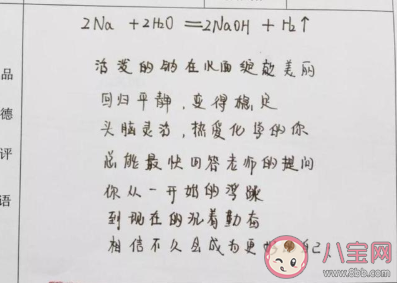 2Na + 2H₂O = 2NaOH + H₂↑
活泼的钠在水面绽放美丽
回归平静，变得稳定
头脑灵活，热爱化学的你
总能最快回答老师的提问
你从一开始的浮躁
到现在的沉着勤奋
相信不久会成为更 自己
品德评语
八宝网
www.8bb.com